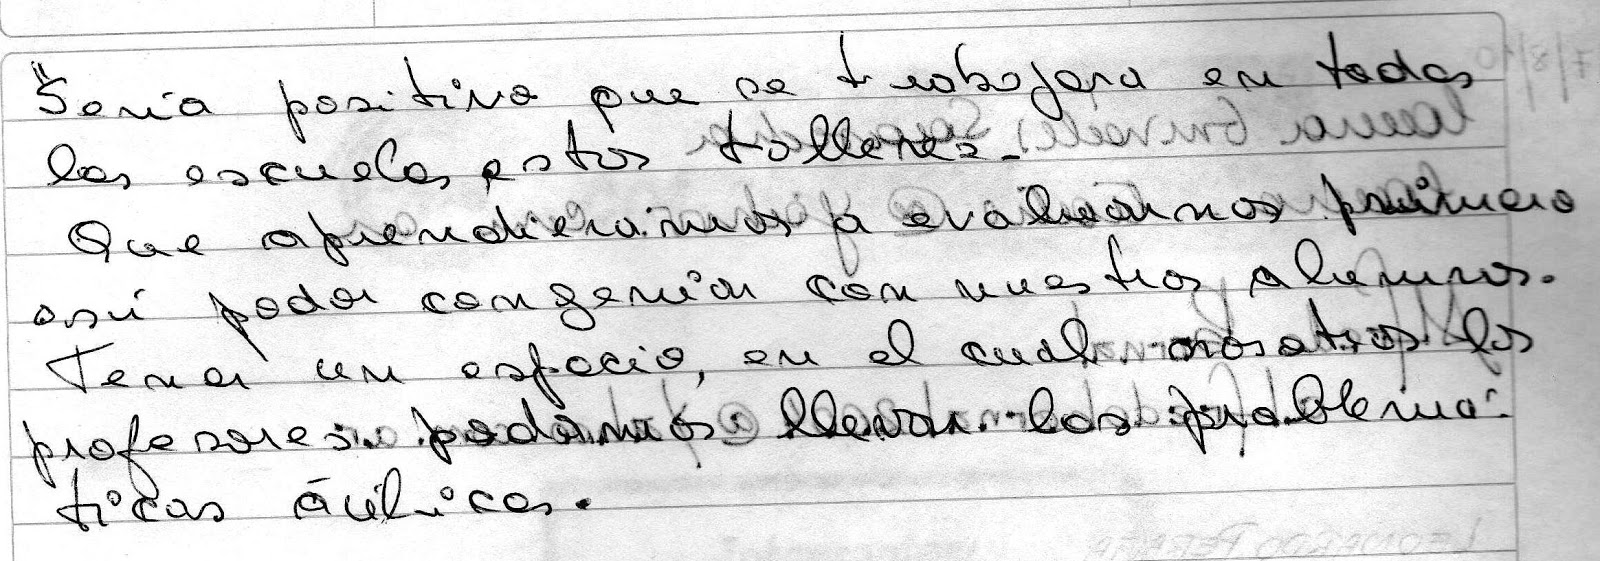 "Sería positivo que se trabajara en todas
las escuelas estos talleres.
Que aprendieramos a evaluarnos primero
así poder congeniar con nuestros alumnos.
Tener un espacio, en el cual nosotros los
profesores podamos llevar las problemá-
ticas áulicas.